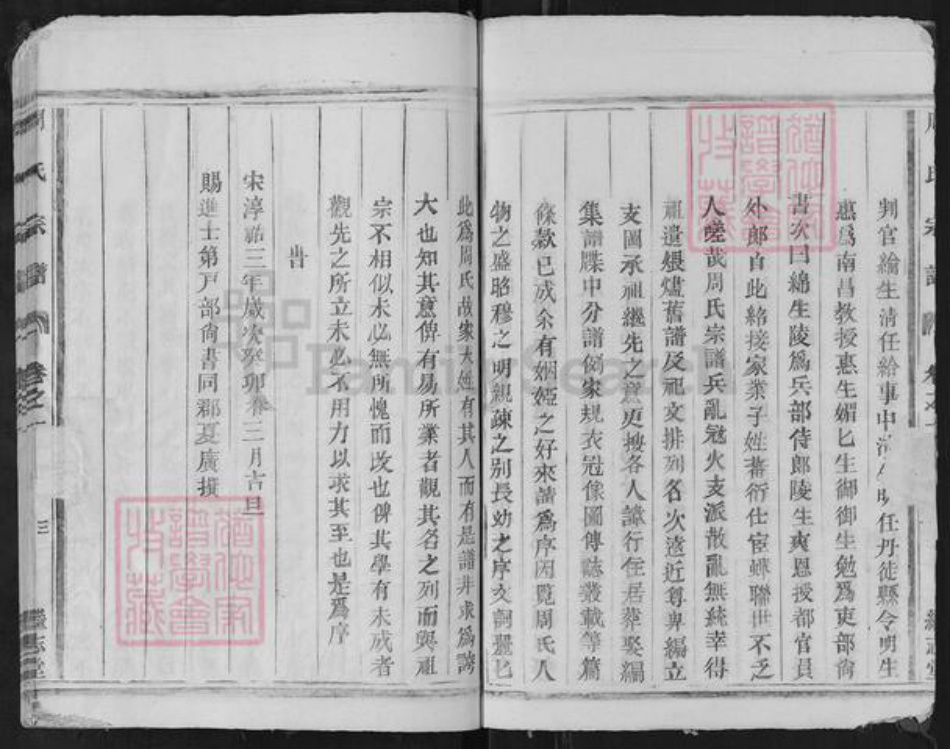 判官綸生清任給事中清生明任丹徒縣令明生
惠爲南昌教授惠生媚匕生御御生勉爲吏部尙
書次曰綿生陵爲兵部侍郎陵生爽恩授都官員
外郎自此絡接家業子姓蕃衍仕宦蟬聯世不乏
人嗟哉周氏宗譜兵亂冦火支派散亂無統幸得
祖遺煨燼舊譜及祖文排列名次遠近尊卑編立
支圖承祖繼先之意更搜各人諱行住居葬娶編
集譜牒中分譜例家規衣冠像圖傳誌叢載等篇
條欵已成余有姻婭之好來請爲序因覽周氏人
物之盛昭穆之明親疎之别長幼之序文詞麗匕
此爲周氏故家大姓有其人而有是譜非求爲誇
大也知其意俾有易所業者觀其名之列而與祖
宗不相似未必無所愧而改也俾其學有未成者
觀先之所立未必不用力以求其至也是爲序
旹
宋淳祐三年歲次癸卯春三月吉旦
賜進士第戸部尙書同郡夏廣撰
周氏宗譜
卷之一
三
繼志堂
FamilySearch